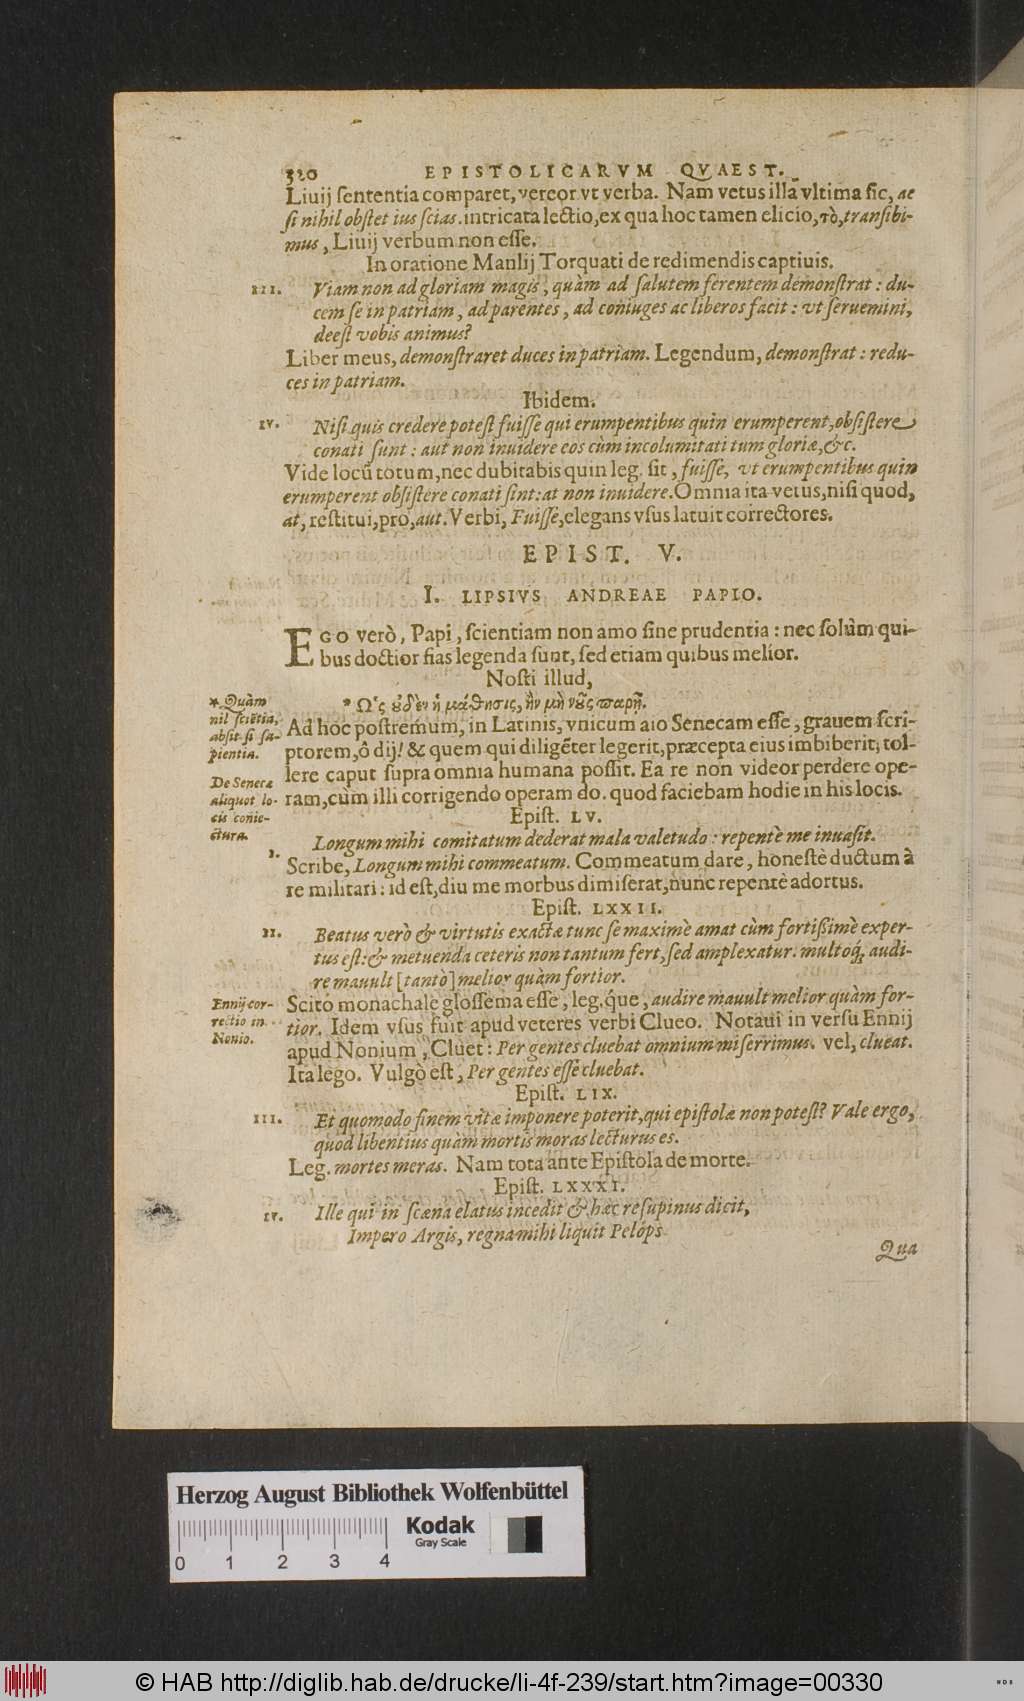 320 EPISTOLICARVM QVAEST.
Liuij sententia comparet, vereor vt verba. Nam vetus illa vltima sic, ac
si nihil obstet ius scias. intricata lectio, ex qua hoc tamen elicio, τὸ, transibi-
mus, Liuij verbum non esse.
In oratione Manlij Torquati de redimendis captiuis.
III. Viam non ad gloriam magis, quàm ad salutem ferentem demonstrat: du-
cem se in patriam, ad parentes, ad coniuges ac liberos facit: vt seruemini,
deest vobis animus?
Liber meus, demonstraret duces in patriam. Legendum, demonstrat: redu-
ces in patriam.
Ibidem.
IV. Nisi quis credere potest fuisse qui erumpentibus quin erumperent, obsistere
conati sunt: aut non inuidere eos cùm incolumitati tum gloriæ, &c.
Vide locū totum, nec dubitabis quin leg. sit, fuisse, vt erumpentibus quin
erumperent obsistere conati sint: at non inuidere. Omnia ita vetus, nisi quod,
at, restitui, pro, aut. Verbi, Fuisse, elegans vsus latuit correctores.
EPIST. V.
I. LIPSIVS ANDREAE PAPIO.
EGO verò, Papi, scientiam non amo sine prudentia: nec solùm qui-
bus doctior fias legenda sunt, sed etiam quibus melior.
Nosti illud,
* Ὡς ȣ̓δὲν ἡ μάθησις, ἢν μὴ νȣ͂ς παρῇ.
* Quàm
nil sciētia,
absit si sa-
pientia.
Ad hoc postremum, in Latinis, vnicum aio Senecam esse, grauem scri-
ptorem, ô dij! & quem qui diligēter legerit, præcepta eius imbiberit, tol-
lere caput supra omnia humana possit. Ea re non videor perdere ope-
ram, cùm illi corrigendo operam do. quod faciebam hodie in his locis.
De Senecæ
aliquot lo-
cis conie-
ctura.
Epist. LV.
I. Longum mihi comitatum dederat mala valetudo: repentè me inuasit.
Scribe, Longum mihi commeatum. Commeatum dare, honestè ductum à
re militari: id est, diu me morbus dimiserat, nunc repentè adortus.
Epist. LXXII.
II. Beatus verò & virtutis exactæ tunc se maximè amat cùm fortissimè exper-
tus est: & metuenda ceteris non tantum fert, sed amplexatur. multoq́; audi-
re mauult [tantò] melior quàm fortior.
Scito monachale glossema esse, leg. que, audire mauult melior quàm for-
tior. Idem vsus fuit apud veteres verbi Clueo. Notaui in versu Ennij
apud Nonium, Cluet: Per gentes cluebat omnium miserrimus. vel, clueat.
Ita lego. Vulgò est, Per gentes esse cluebat.
Ennij cor-
rectio in
Nonio.
Epist. LIX.
III. Et quomodo finem vitæ imponere poterit, qui epistolæ non potest? Vale ergo,
quod libentius quàm mortis moras lecturus es.
Leg. mortes meras. Nam tota ante Epistola de morte.
Epist. LXXXI.
IV. Ille qui in scæna elatus incedit & hæc resupinus dicit,
Impero Argis, regna mihi liquit Pelops
Qua
Herzog August Bibliothek Wolfenbüttel
Kodak
Gray Scale
0 1 2 3 4
© HAB http://diglib.hab.de/drucke/li-4f-239/start.htm?image=00330